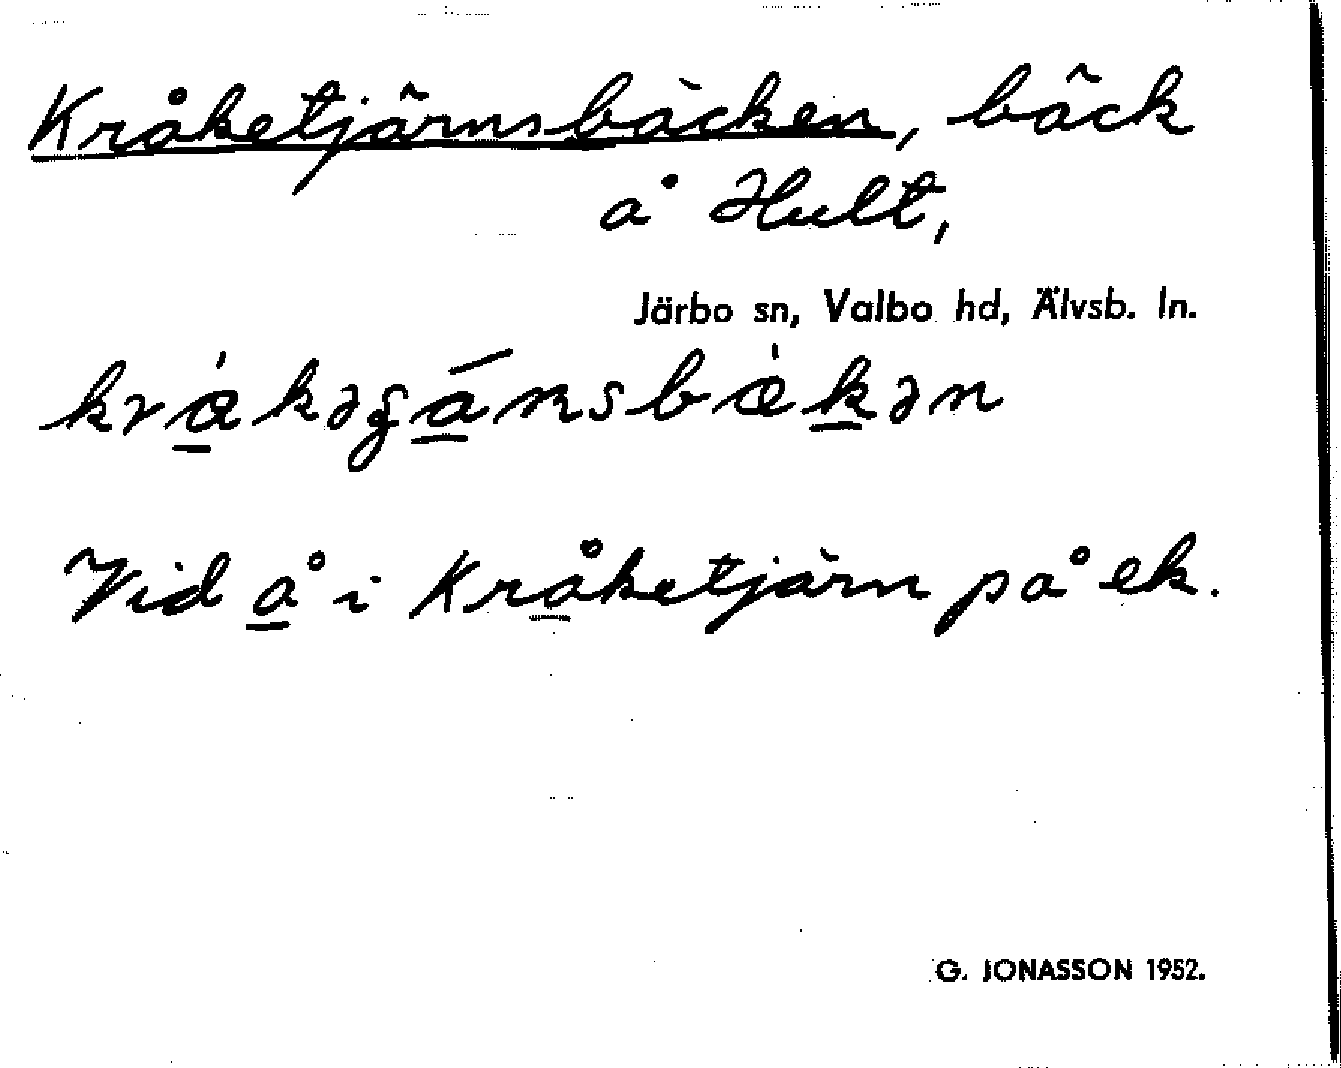 Kråketjärnsbäcken, bäck
å Hult,
Järbo sn, Valbo hd, Älvsb. ln.
Vid å i Kråketjärn på ek.
G. JONASSON 1952.